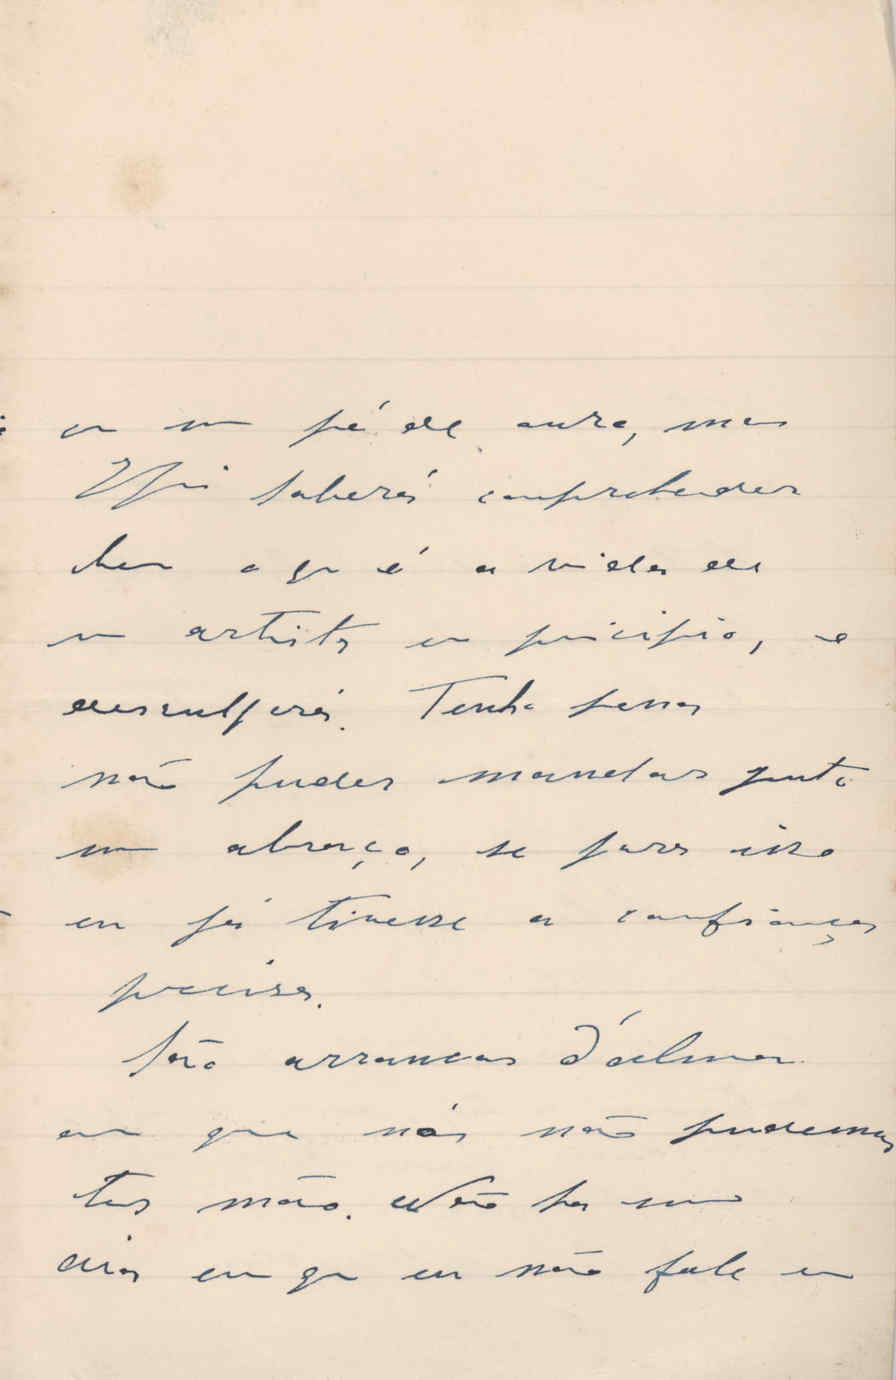 em um pé de aura, mas
V. saberá comprehender
bem o q e é a vida de
um artista em principio, e
desculpará. Tenho pena
não puder mandar junto
um abraço, se para isso
eu já tivesse a confiança
precisa.
São arrancos d'alma
em que nós não pudemos
ter mão. Não ha um
dia em q eu não fale em